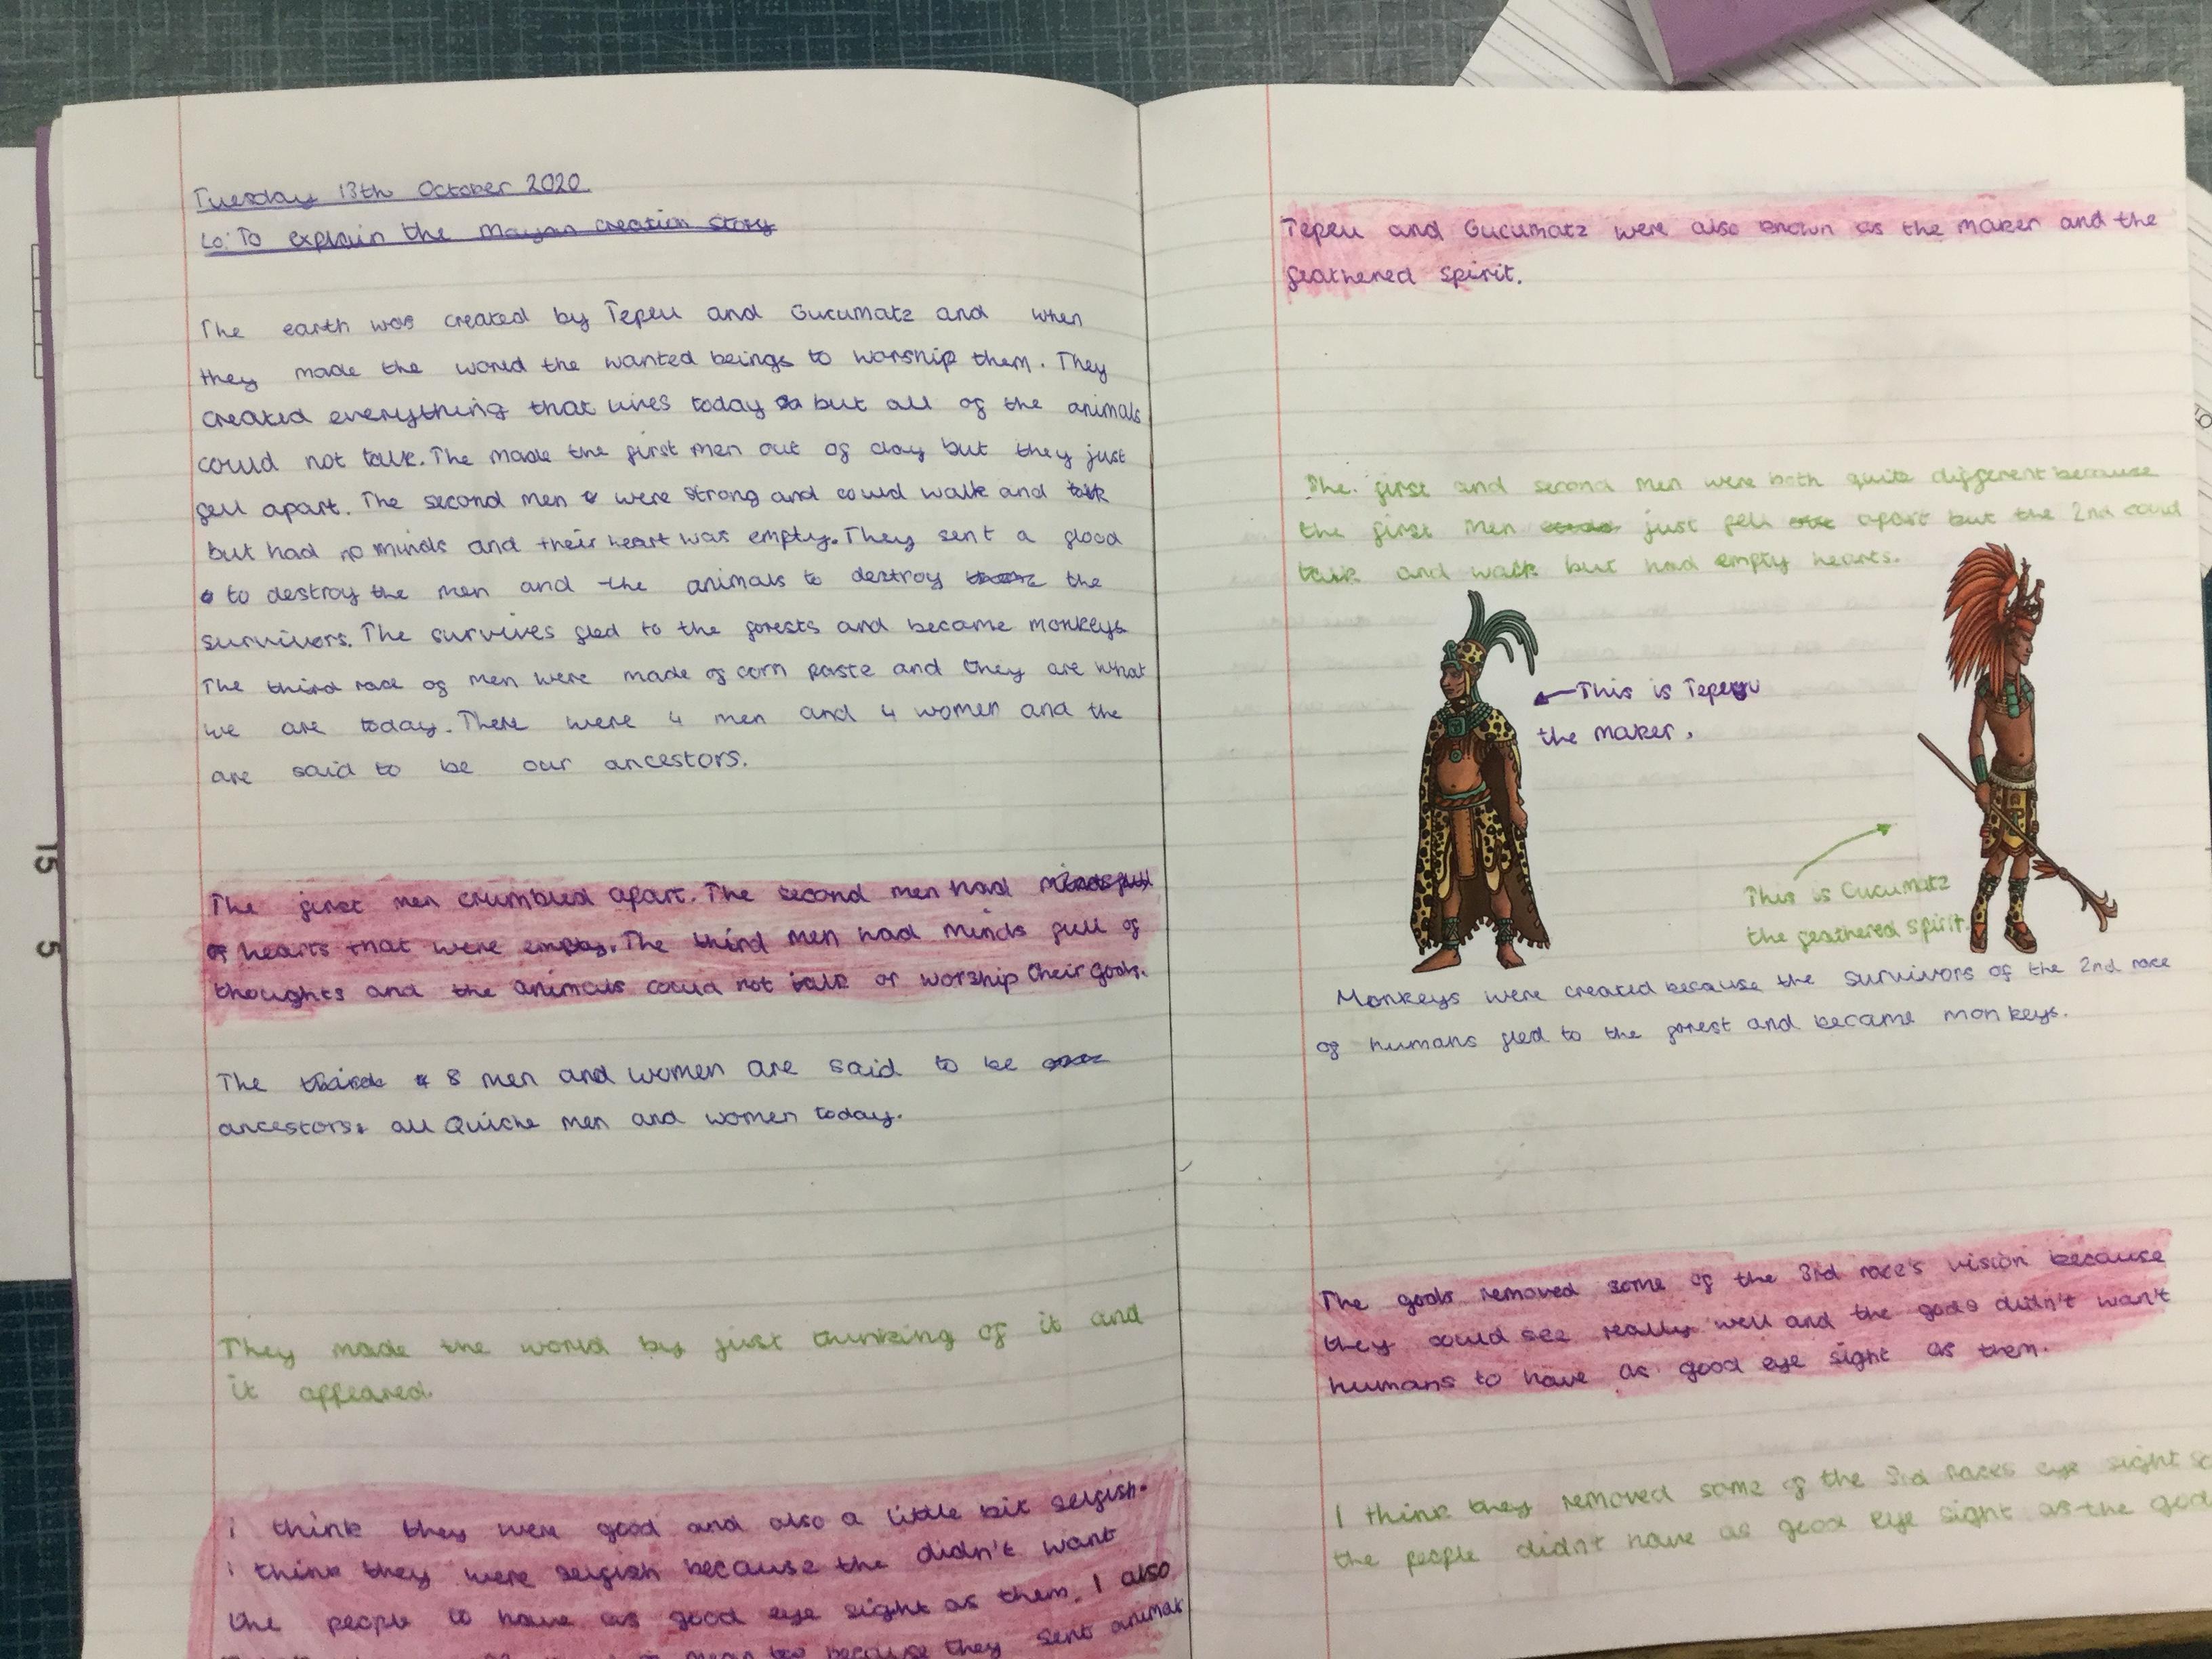 Tuesday 13th October 2020
Lo: To explain the Mayan creation story
The earth was created by Tepeu and Gucumatz and when
they made the world the wanted beings to worship them. They
created everything that lives today but all of the animals
could not talk. The made the first men out of clay but they just
fell apart. The second men were strong and could walk and talk
but had no minds and their heart was empty. They sent a flood
to destroy the men and the animals to destroy the
survivors. The survives fled to the forests and became monkeys
The third race of men were made of corn paste and they are what
we are today. There were 4 men and 4 women and the
are said to be our ancestors.
The first men crumbled apart. The second men had minds full
of hearts that were empty. The third men had minds full of
thoughts and the animals could not talk or worship their gods.
The third 8 men and women are said to be
ancestors all Quiche men and women today.
They made the world by just thinking of it and
it appeared.
I think they were good and also a little bit selfish.
I think they were selfish because the didn't want
the people to have as good eye sight as them. I also
mean too because they sent animals
Tepeu and Gucumatz were also known as the maker and the
feathered spirit.
The first and second men were both quite different because
the first men just fell apart but the 2nd could
talk and walk but had empty hearts.
This is Tepeu
the maker.
This is Cucumatz
the feathered spirit.
Monkeys were created because the survivors of the 2nd race
of humans fled to the forest and became monkeys.
The gods removed some of the 3rd race's vision because
they could see really well and the gods didn't wan't
humans to have as good eye sight as them.
I think they removed some of the 3rd races eye sight so
the people didn't have as good eye sight as the god
15
5